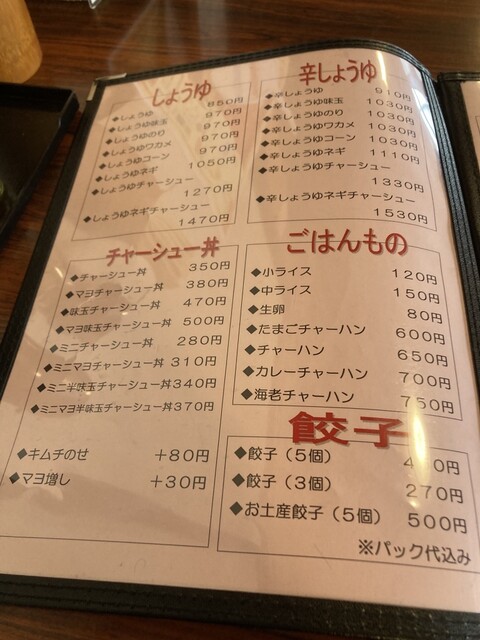 しょうゆ
◆しょうゆ 850円
◆しょうゆ味玉 970円
◆しょうゆのり 970円
◆しょうゆワカメ 970円
◆しょうゆコーン 970円
◆しょうゆネギ 1050円
◆しょうゆチャーシュー
1270円
◆しょうゆネギチャーシュー
1470円
辛しょうゆ
◆辛しょうゆ 910円
◆辛しょうゆ味玉 1030円
◆辛しょうゆのり 1030円
◆辛しょうゆワカメ 1030円
◆辛しょうゆコーン 1030円
◆辛しょうゆネギ 1110円
◆辛しょうゆチャーシュー
1330円
◆辛しょうゆネギチャーシュー
1530円
チャーシュー丼
◆チャーシュー丼 350円
◆マヨチャーシュー丼 380円
◆味玉チャーシュー丼 470円
◆マヨ味玉チャーシュー丼 500円
◆ミニチャーシュー丼 280円
◆ミニマヨチャーシュー丼 310円
◆ミニ半味玉チャーシュー丼340円
◆ミニマヨ半味玉チャーシュー丼370円
◆キムチのせ +80円
◆マヨ増し +30円
ごはんもの
◆小ライス 120円
◆中ライス 150円
◆生卵 80円
◆たまごチャーハン 600円
◆チャーハン 650円
◆カレーチャーハン 700円
◆海老チャーハン 750円
餃子
◆餃子(5個)
◆餃子(3個) 270円
◆お土産餃子(5個) 500円
※パック代込み